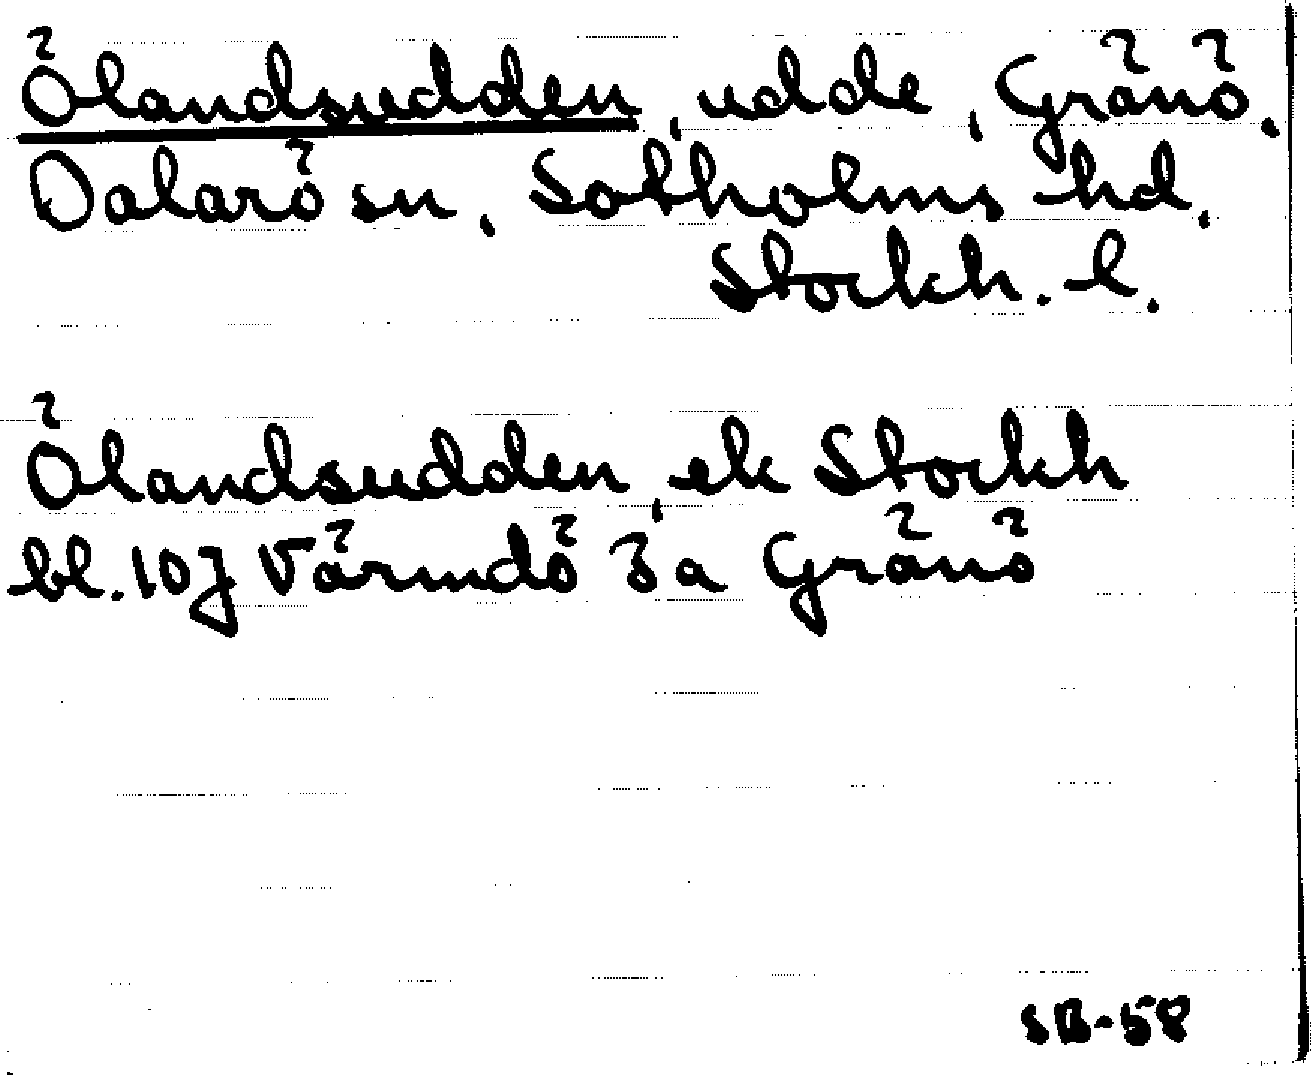 Ölandsudden, udde, Gränö,
Dalarö sn, Sotholms hd,
Stockh. l.
Ölandsudden, ek Stockh
bl. 10J Värmdö 3a Gränö
SB-58